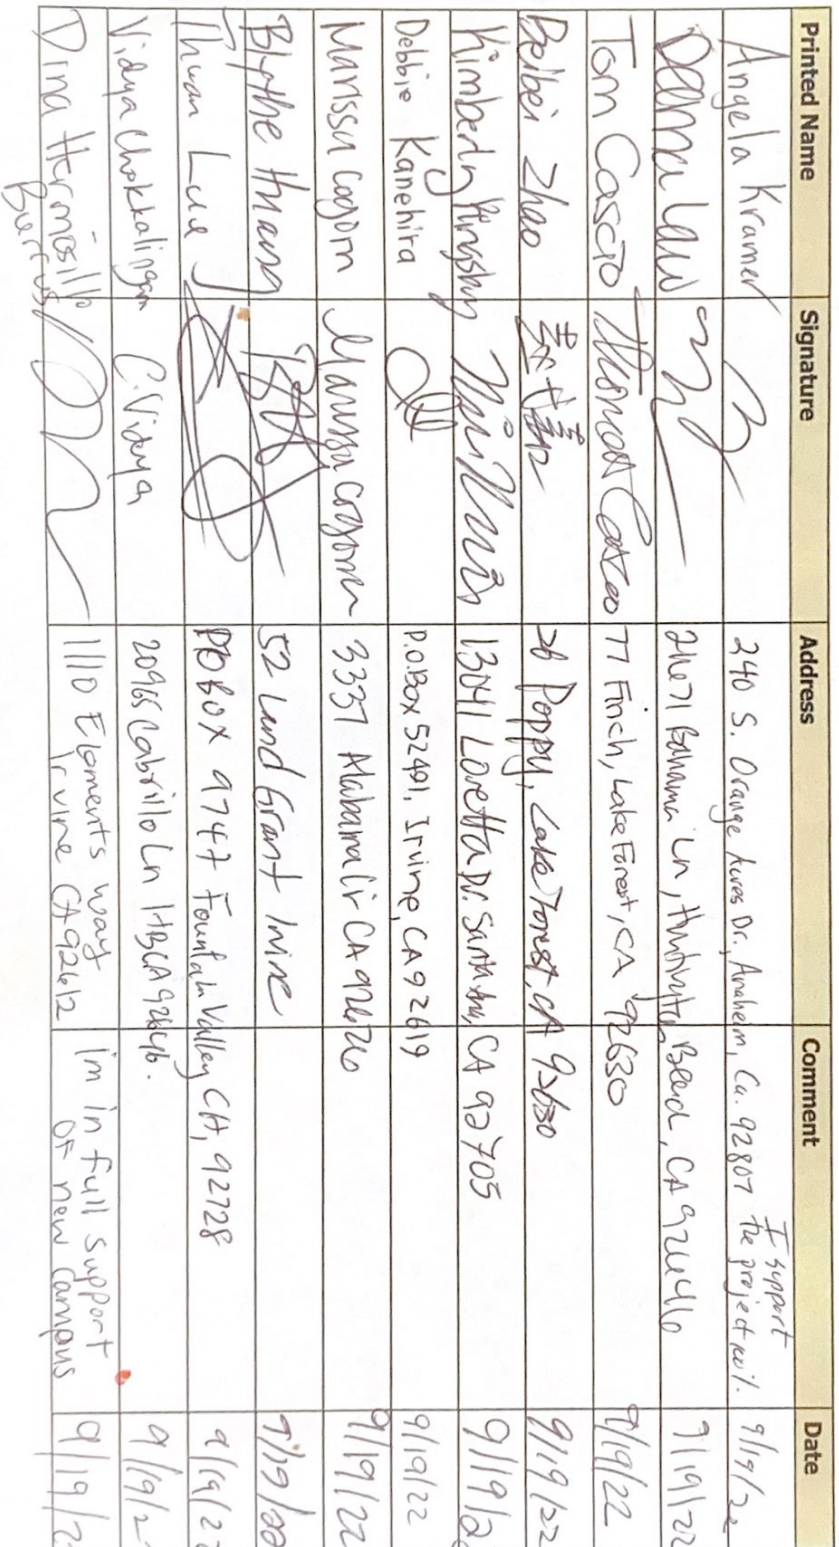 Printed Name Signature Address Comment Date
Angela Kramer 240 S. Orange Acres Dr., Anaheim, Ca. 92807 I support the project 100%. 9/19/22
Law 21671 Bahama Ln, Huntington Beach, CA 92646 9/19/22
Tom Cascio Thomas Cascio 77 Finch, Lake Forest, CA 92630 9/19/22
Beibei Zhao 26 Poppy, Lake Forest, CA 92630 9/19/22
Kimberly Kingsbury 13041 Loretta Dr. Santa Ana, CA 92705 9/19/2
Debbie Kanehira P.O. Box 52491, Irvine, CA 92619 9/19/22
Marissa Cogorn Marissa Cogorn 3337 Alabama Cir CA 92626 9/19/22
Blythe Huang 52 Land Grant Irvine 9/19/22
Thuan Luu PO BOX 9747 Fountain Valley CA, 92728 9/19/2
Vidya Chokkalingam C. Vidya 20965 Cabrillo Ln HB CA 92646. 9/19/2
Dina Hermosillo 1110 Elements Way
Irvine CA 92612 I'm in full support
of new campus 9/19/2